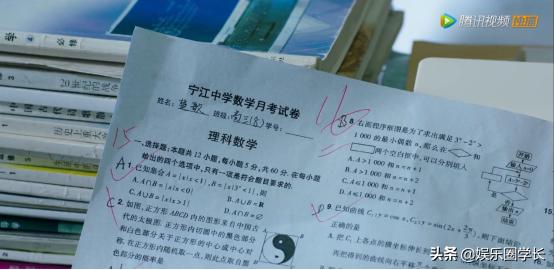 腾讯视频
学 ④ 必修
20世纪的战
中国古代诗歌
历史上重大
宁江中学数学月考试卷
姓名:
班级:
学号:
理科数学
15
16
一、选择题:本题共 12 小题,每小题 5 分,共 60 分. 在每小题
给出的四个选项中,只有一项是符合题目要求的.
A 1. 已知集合 A={x|x<1},B={x|3ˣ<1},则
A. A∩B={x|x<0}
B. A∪B=R
C. A∪B={x|x>1}
D. A∩B=∅
C 2. 如图,正方形 ABCD 内的图形来自中国古
代的太极图. 正方形内切圆中的黑色部分
和白色部分关于正方形的中心成中心对
称. 在正方形内随机取一点,则此点取自黑
色部分的概率是
B 8. 右面程序框图是为了求出满足 3ⁿ-2ⁿ>
1 000 的最小偶数 n,那么在
和
两个空白框中,可以分别填入
A. A>1 000 和 n=n+1
B. A>1 000 和 n=n+2
C. A≤1 000 和 n=n+1
D. A≤1 000 和 n=n+2
开始
9. 已知曲线 C₁:y=cos x,C₂:y=sin(2x+2π/3),则下面结论
正确的是
A. 把 C₁ 上各点的横坐标伸长
再把得到的曲线向右平移
15
头条 @娱乐圈学长